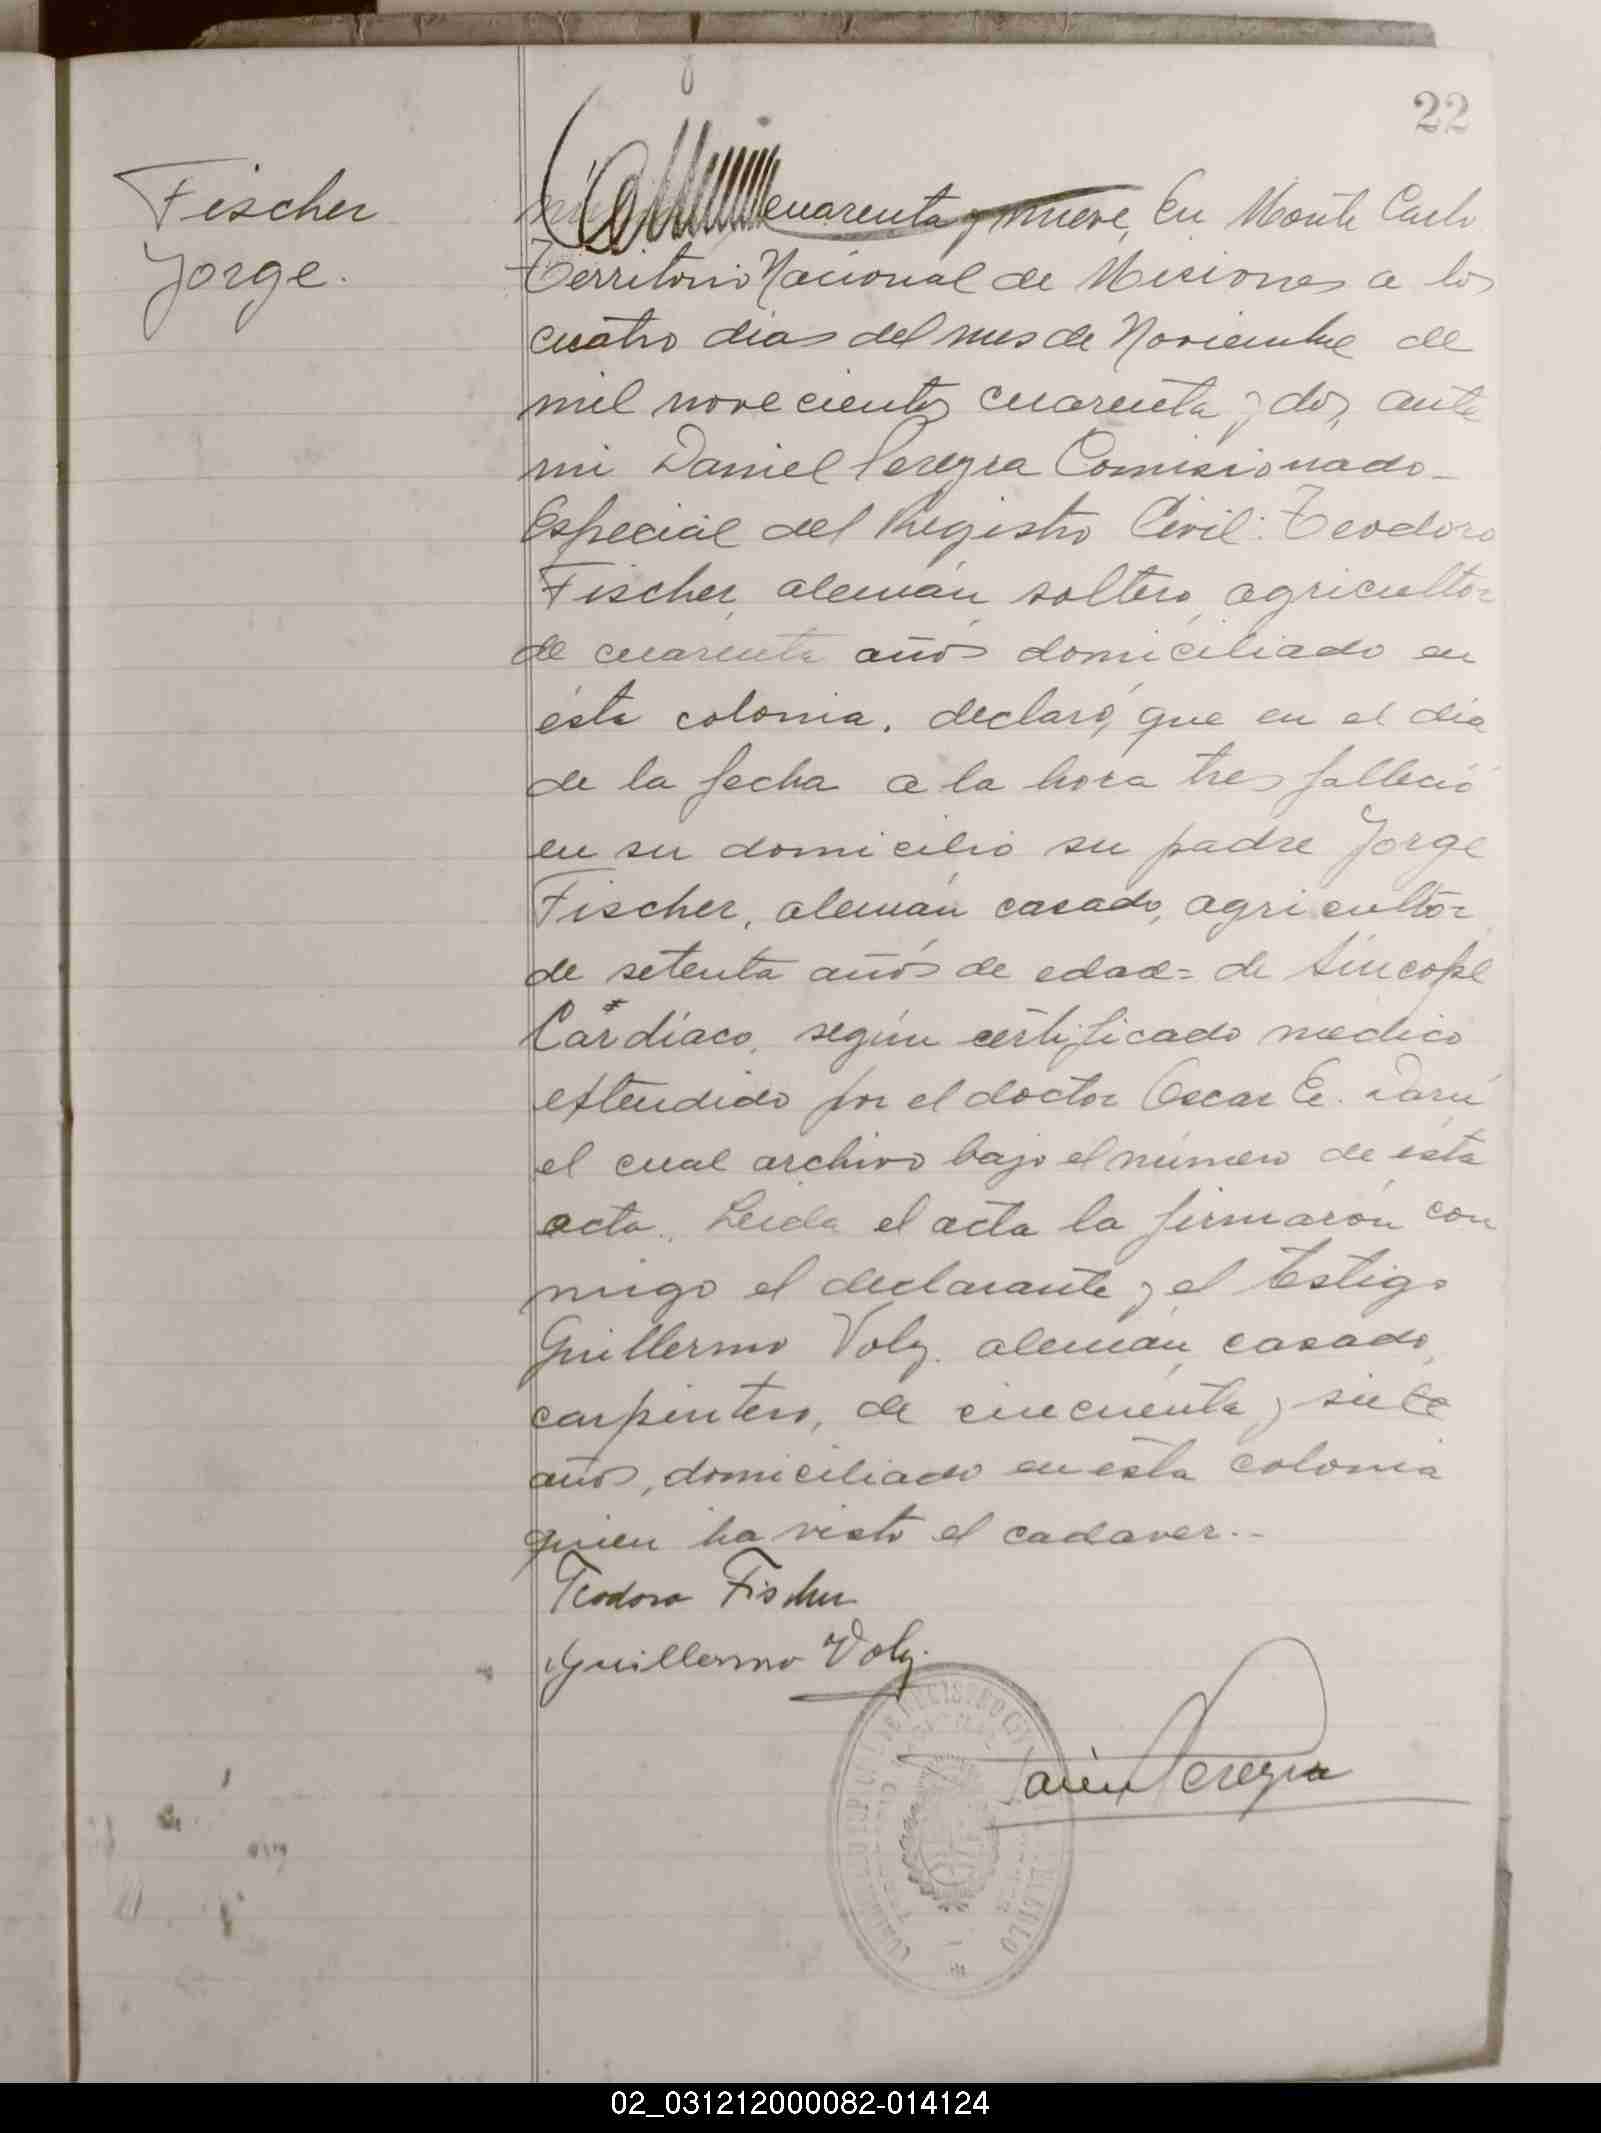 22
Fischer
Jorge.
cuarenta y nueve, En Monte Carlo
Territorio Nacional de Misiones a los
cuatro dias del mes de Noviembre de
mil novecientos cuarenta y dos, ante
mi Daniel Pereyra Comisionado
Especial del Registro Civil: Teodoro
Fischer, alemán soltero, agricultor
de cuarenta años domiciliado en
ésta colonia, declaró, que en el dia
de la fecha a la hora tres falleció
en su domicilio su padre Jorge
Fischer, alemán casado, agricultor
de setenta años de edad = de Síncope
Cardíaco, según certificado medico
extendido por el doctor Oscar E. Darú
el cual archivo bajo el número de ésta
acta. Leida el acta la firmarón con
migo el declarante y el testigo
Guillermo Volz. alemán, casado,
carpintero, de cincuenta y siete
años, domiciliado en ésta colonia
quien ha visto el cadaver.-
Teodoro Fischer
Guillermo Volz.
Daniel Pereyra
02_031212000082-014124